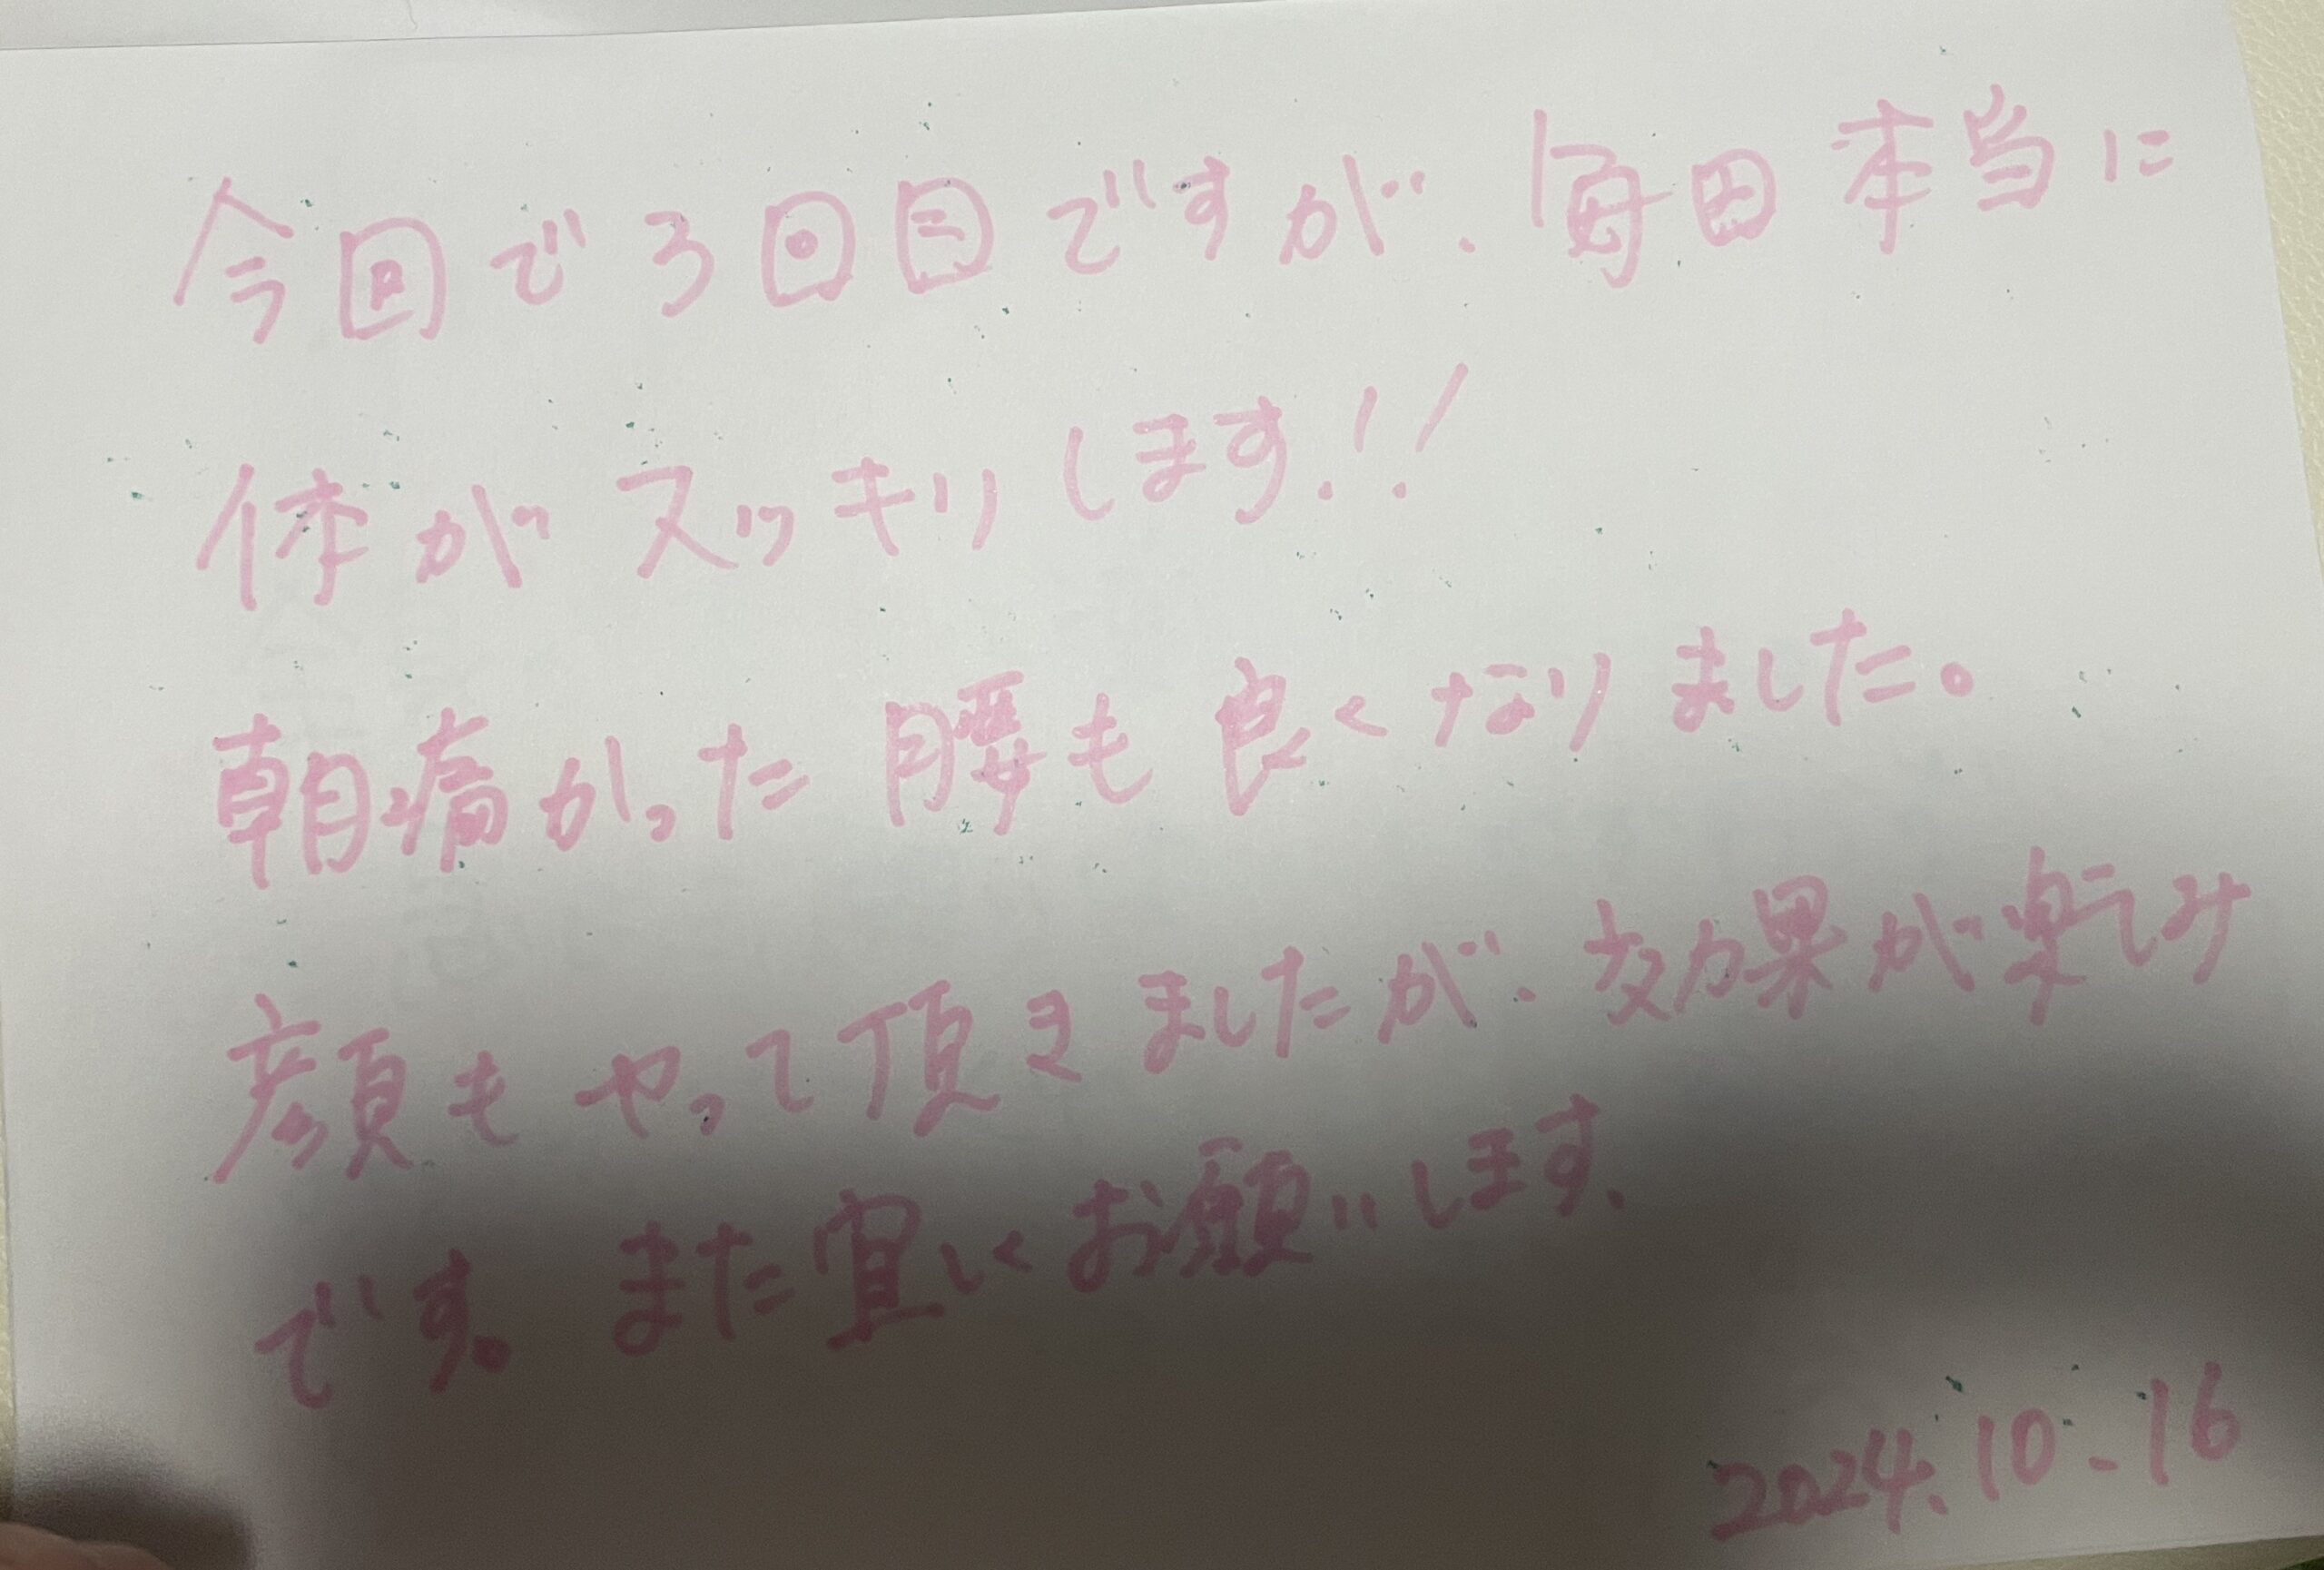 今回で3回目ですが、毎回本当に
体がスッキリします!!
朝痛かった腰も良くなりました。
顔もやって頂きましたが、効果が楽しみ
です。また宜しくお願いします、
2024.10.16